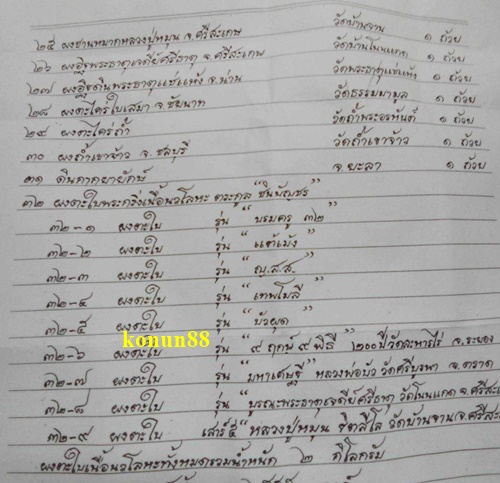 ๒๕ ผงชานหมากหลวงปู่หมุน จ.ศรีสะเกษ วัดบ้านจาน ๑ ถ้วย
๒๖ ผงอิฐพระธาตุเจดีย์ศรีธาตุ จ.ศรีสะเกษ วัดบ้านโนนแกด ๑ ถ้วย
๒๗ ผงอิฐดินพระธาตุแช่แห้ง จ.น่าน วัดพระธาตุแช่แห้ง ๑ ถ้วย
๒๘ ผงตะไคร่ใบเสมา จ.ชัยนาท วัดธรรมามูล ๑ ถ้วย
๒๙ ผงตะไคร่ถ้ำ วัดถ้ำพระอรหันต์ ๑ ถ้วย
๓๐ ผงถ้ำเขาจ้าว จ.ชลบุรี วัดถ้ำเขาจ้าว ๑ ถ้วย
๓๑ ดินกากยายักษ์ จ.ยะลา ๑ ถ้วย
๓๒ ผงตะไบพระกริ่งเนื้อนวโลหะ ตระกูล "ชินบัญชร"
๓๒-๑ ผงตะไบ รุ่น "บรมครู ๓๒"
๓๒-๒ ผงตะไบ รุ่น "แต้เม้ง"
๓๒-๓ ผงตะไบ รุ่น "ญ.ส.ส."
๓๒-๔ ผงตะไบ รุ่น "เทพโมลี"
๓๒-๕ ผงตะไบ รุ่น "บัวผุด"
konun88
๓๒-๖ ผงตะไบ รุ่น "๙ ฤกษ์ ๙ พิธี" ๒๐๐ปีวัดละหารไร่ จ.ระยอง
๓๒-๗ ผงตะไบ รุ่น "มหาเศรษฐี" หลวงพ่อบัว วัดศรีบูรพา จ.ตราด
๓๒-๘ ผงตะไบ รุ่น "บูรณะพระธาตุเจดีย์ศรีธาตุ วัดโนนแกด จ.ศรีสะเกษ
๓๒-๙ ผงตะไบ เสาร์๕ "หลวงปู่หมุน ฐิตสีโล วัดบ้านจาน(จ.ศรีสะเ
ผงตะไบเนื้อนวโลหะทั้งหมดรวมน้ำหนัก ๒ กิโลครับ